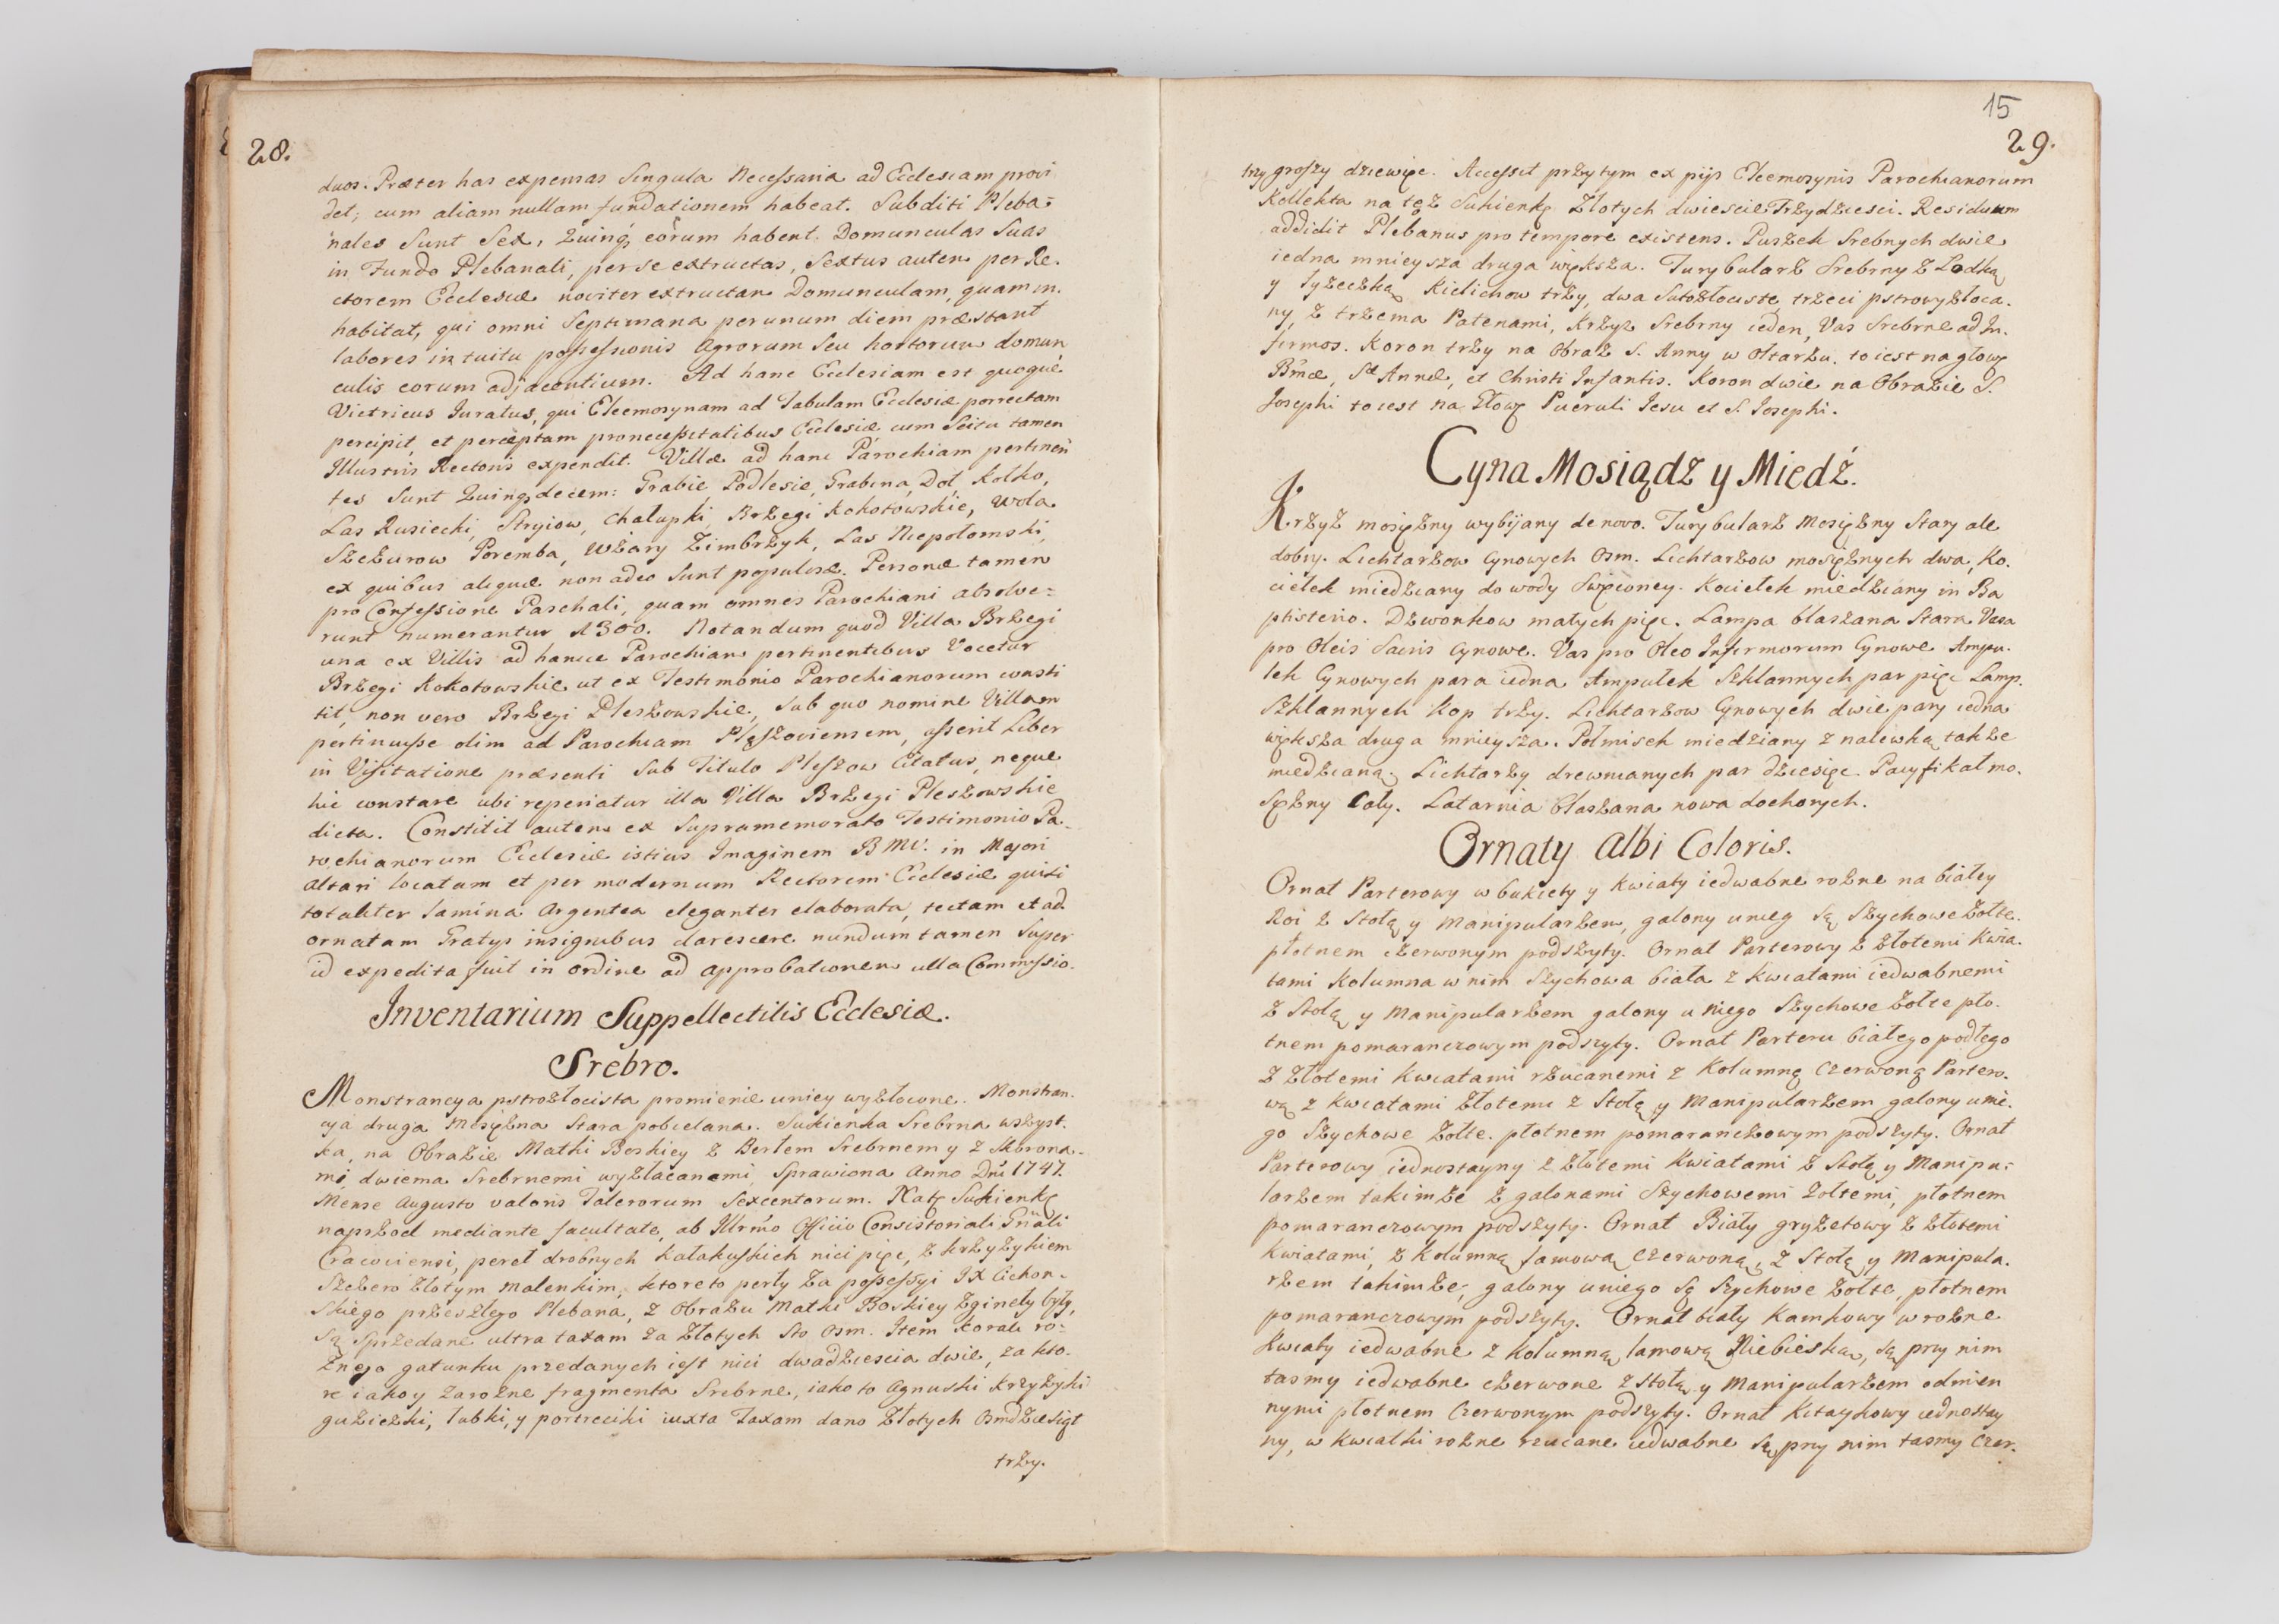 28.
duos. Præter has expensas Singula Necessaria ad Ecclesiam provi
det; cum aliam nullam fundationem habeat. Subditi Pleba=
nales Sunt Sex, Quinq; eorum habent Domunculas Suas
in Fundo Plebanali, per se extructas, Sextus autem per Re.
ctorem Ecclesiæ noviter extructam Domunculam, quam in.
habitat, qui omni Septimana per unum diem præstant
labores intuitu possessionis Agrorum Seu hortorum domun
culis eorum adjacentium. Ad hanc Ecclesiam est quoque
Vietricus Juratus, qui Eleemosynam ad Tabulam Ecclesiæ porrectam
percipit, et perceptam pro necessitatibus Ecclesiæ cum Scitu tamen
Illustris Rectoris expendit. Villæ ad hanc Parochiam pertinen
tes Sunt Quinq decem: Grabie Podlesie, Grabina, Doł Kolko,
Las Rusiecki, Stryiow, Chalupki, Brzegi Kokotowskie, Wola
Szczurow Poremba, Wżary Zimbrzyk, Las Niepołomski,
ex quibus aliquæ non adeo Sunt populosæ. Personæ tamen
pro Confessione Paschali, quam omnes Parochiani absolve=
runt numerantur 1300. Notandum quod Villa Brzegi
una ex Villis ad hance Parochiam pertinentibus Vocetur
Brzegi Kokotowskie ut ex Testimonio Parochianorum consti
tit, non vero Brzegi Pleszowskie, Sub quo nomine Villam
pertinuisse olim ad Parochiam Pleszoviensem, asserit Liber
in Visitatione præsenti Sub Titulo Pleszow Citatus, neque
hic constare ubi reperiatur illa Villa Brzegi Pleszowskie
dicta. Constitit autem ex Supramemorato Testimonio Pa-
rochianorum Ecclesiæ istius Imaginem BMV. in Majori
altari locatam et per modernum Rectorem Ecclesiæ quasi
totaliter lamina Argentea eleganter elaborata, tectam et ad
ornatam Gratys insignibus clarescere nundum tamen Super
id expedita fuit in ordine ad approbationem ulla Commissio.
Inventarium Suppellectilis Ecclesiæ.
Srebro.
Monstrancya pstrozłocista promienie u niey wyzłocone. Monstran.
cya druga Mosiężna Stara pobielana. Sukienka Srebrna wszyst.
ka, na Obrazie Matki Boskiey z Berłem Srebrnem y z Skorona-
mi dwiema Srebrnemi wyzłacanemi, Sprawiona Anno Dni 1747.
Mense Augusto valoris Talerorum Sexcentorum. Na tę Sukienkę
naprzod mediante facultate, ab Illrmo Officio Consistoriali Gnali
Cracoviensi, pereł drobnych kałakuskich nici pięc, z krzyżykiem
Szczero złotym malenkim, ktore to perły za possessyi JX Cichon-
skiego przeszłego Plebana, z Obrazu Matki Boskiey zginely były,
Są Sprzedane ultra taxam za Złotych Sto Osm. Item Korali ro=
żnego gatunku przedanych iest nici dwadziescia dwie, za kto.
re iako y za rożne fragmenta Srebrne, iako to Agnuski Krzyżyki
guziczki, tabki, y portreciki iuxta Taxam dano Złotych Osmdziesiąt
trzy.
15
29.
trzy groszy dziewięc. Accessit przytym ex pijs Eleemosynis Parochianorum
Kollekta na tęż Sukienkę Złotych dwiescie Trzydziesci. Residuum
addidit Plebanus pro tempore existens. Puszek Srebnych dwie
iedna mnieysza druga większa. Turybularz Srebrny z Łodką
y łyżeczką Kielichow trzy, dwa Sutozłociste, trzeci pstrowyzłoca.
ny, z trzema Patenami, Krzyż Srebrny ieden, Vas Srebrne ad In.
firmos. Koron trzy na Obraz S. Anny w Ołtarzu. to iest na głowę
Bmæ, Sæ Annæ, et Christi Infantis. Koron dwie na Obrazie S.
Josephi to iest na Głowę Pueruli Jesu et S. Josephi.
Cyna Mosiądz y Miedź.
Krzyż mosiężny wybijany de novo. Turybularz Mosiężny Stary ale
dobry. Lichtarzow Cynowych Osm. Lichtarzow mosiężnych dwa, Ko.
ciełek miedziany do wody Swięconey. Kociełek miedziany in Ba
ptisterio. Dzwonkow małych pięc. Lampa blaszana Stara. Vasa
pro Oleis Sacris Cynowe. Vas pro Oleo Infirmorum Cynowe Ampu.
lek Cynowych para iedna Ampułek Szklannych par pięc Lamp.
Szklannych Kop trzy. Lichtarzow Cynowych dwie pary iedna
większa druga mnieysza. Połmisek miedziany z nalewką także
miedzianą. Lichtarzy drewnianych par dziesięc. Pacyfikał mo.
siężny Cały. Latarnia blaszana nowa do chorych.
Ornaty Albi Coloris.
Ornat Parterowy w bukiety y kwiaty iedwabne rożne na białey
Roi z Stołą y Manipularzem, galony u nieg Są Szychowe żołte.
płotnem czerwonym podszyty. Ornat Parterowy z złotemi kwia.
tami Kolumna w nim Szychowa biała z kwiatami iedwabnemi
z Stołą y Manipularzem galony u niego Szychowe żołte pło.
tnem pomaranczowym podszyty. Ornat Parteru białego podłego
z złotemi kwiatami rzucanemi z Kolumną Czerwoną Partero.
wą z kwiatami złotemi z Stołą y Manipularzem galony u nie.
go Szychowe żołte. płotnem pomaranczowym podszyty. Ornat
Parterowy iednostayny z złotemi Kwiatami z Stołą y Manipu-
larzem takimże z galonami Szychowemi żołtemi, płotnem
pomaranczowym podszyty. Ornat Biały gryzetowy z złotemi
Kwiatami, z Kolumną lamową Czerwoną, z Stołą y Manipula.
rzem takimże, galony u niego Są Szychowe żołte, płotnem
pomaranczowym podszyty. Ornat biały Kamkowy w rożne
Kwiaty iedwabne z Kolumną lamową Niebieską, są przy nim
tasmy iedwabne czerwone z Stołą y Manipularzem odmien
nymi płotnem Czerwonym podszyty. Ornat Kitaykowy iednostay
ny, w kwiatki rożne rzucane iedwabne Są przy nim tasmy Czer.